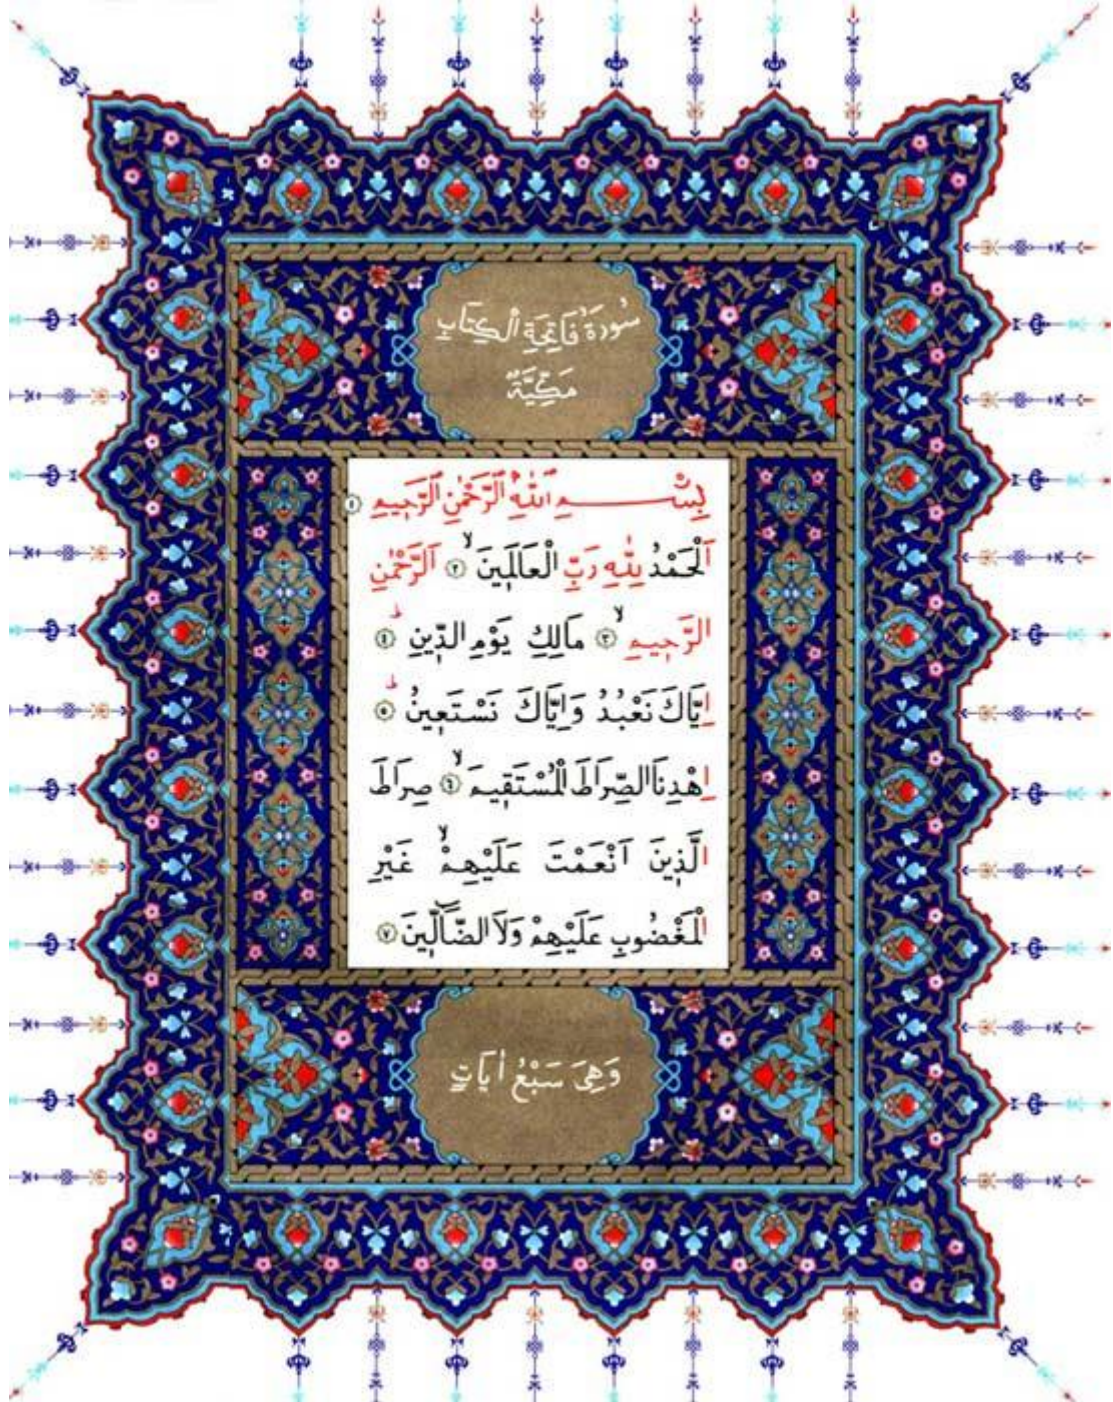 سُورَةُ فَاتِحَةِ الْكِتَابِ
مَكِّيَّةٌ
بِسْــــمِ ٱللّٰهِ ٱلرَّحْمٰنِ ٱلرَّحِيمِ ١
اَلْحَمْدُ لِلّٰهِ رَبِّ الْعَالَمِينَۙ ٢ اَلرَّحْمٰنِ
الرَّحِيمِۙ ٣ مَالِكِ يَوْمِ الدِّينِۜ ٤
اِيَّاكَ نَعْبُدُ وَاِيَّاكَ نَسْتَعِينُۜ ٥
اِهْدِنَا الصِّرَاطَ الْمُسْتَقِيمَۙ ٦ صِرَاطَ
الَّذِينَ اَنْعَمْتَ عَلَيْهِمْۙ غَيْرِ
الْمَغْضُوبِ عَلَيْهِمْ وَلَا الضَّٓالِّينَ ٧
وَهِيَ سَبْعُ اٰيَاتٍ